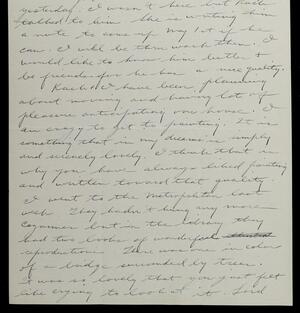 yesterday. I wasn't here but Kach
talked to him. She is writing him
a note to come up May 1st if he
can. I will be thru work then. I
would like to know him better &
be friends for he has a nice quality.
Kach & I have been planning
about moving and having lot of
pleasure anticipating our house. I
am crazy to get to painting. It is
something that in my dreams is simply
and serenely lovely. I think that is
why you have always liked painting
and written toward that quality.
I went to the Metropolitan last
week. They hadn't hung any more
Cezannes but in the library they
had two books of wonderful
reproductions. There was one in color
of a bridge surrounded by trees.
It was so lovely that you just felt
like crying to look at it. Lord